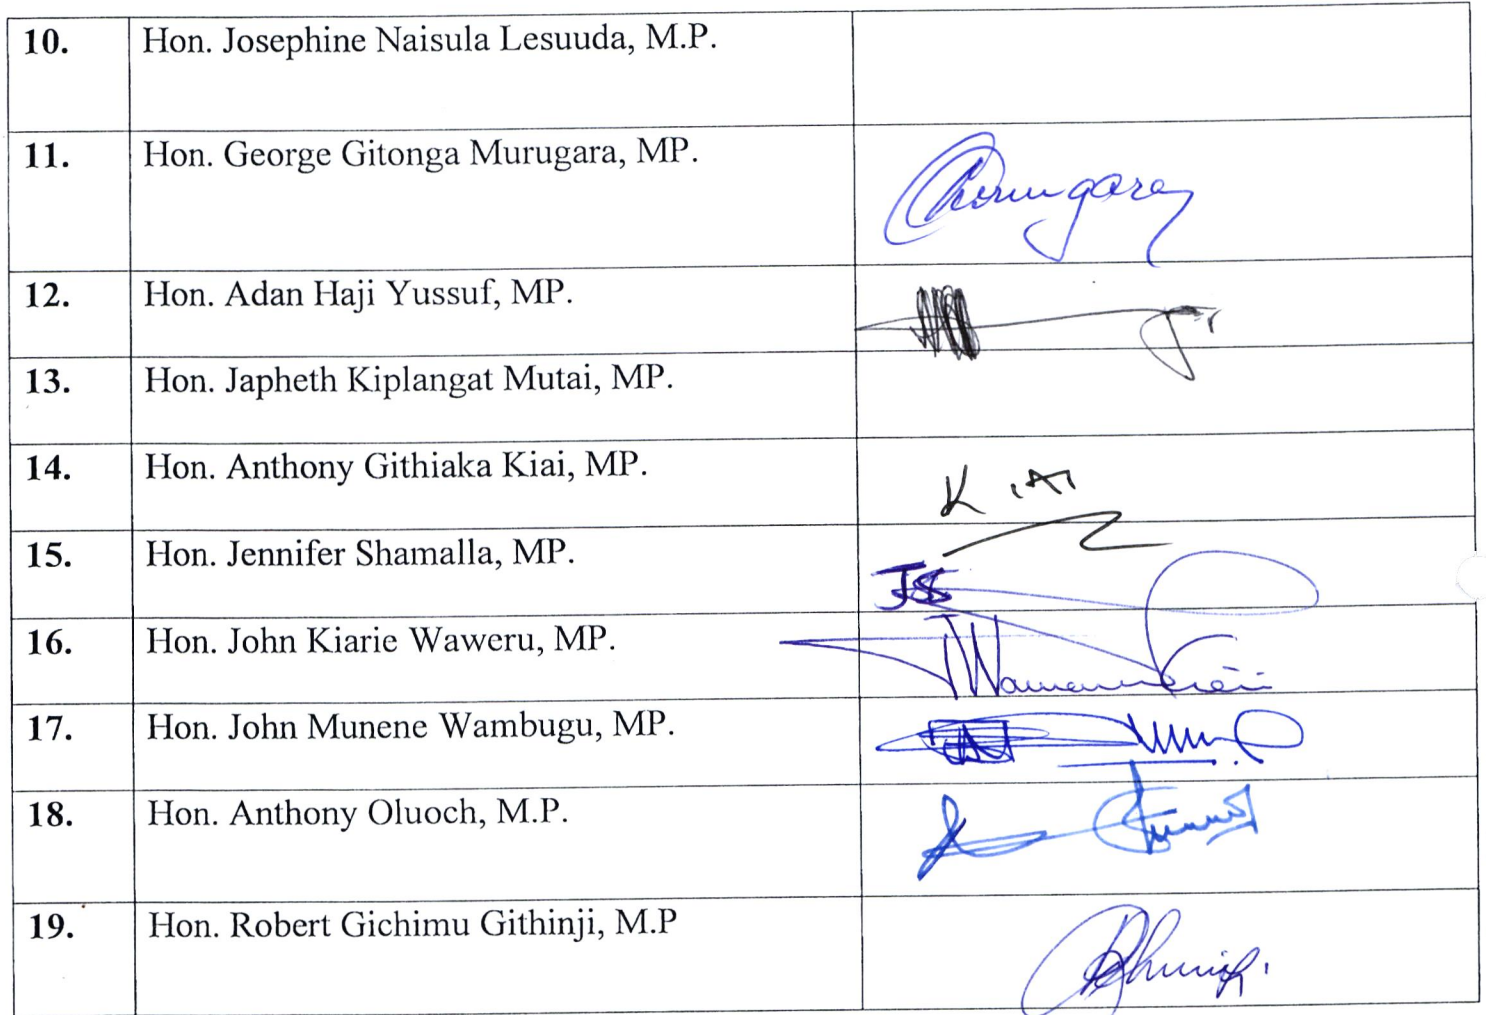 10. Hon. Josephine Naisula Lesuuda, M.P.
11. Hon. George Gitonga Murugara, MP.
12. Hon. Adan Haji Yussuf, MP.
13. Hon. Japheth Kiplangat Mutai, MP.
14. Hon. Anthony Githiaka Kiai, MP. KIAI
15. Hon. Jennifer Shamalla, MP. JS
16. Hon. John Kiarie Waweru, MP.
17. Hon. John Munene Wambugu, MP.
18. Hon. Anthony Oluoch, M.P.
19. Hon. Robert Gichimu Githinji, M.P